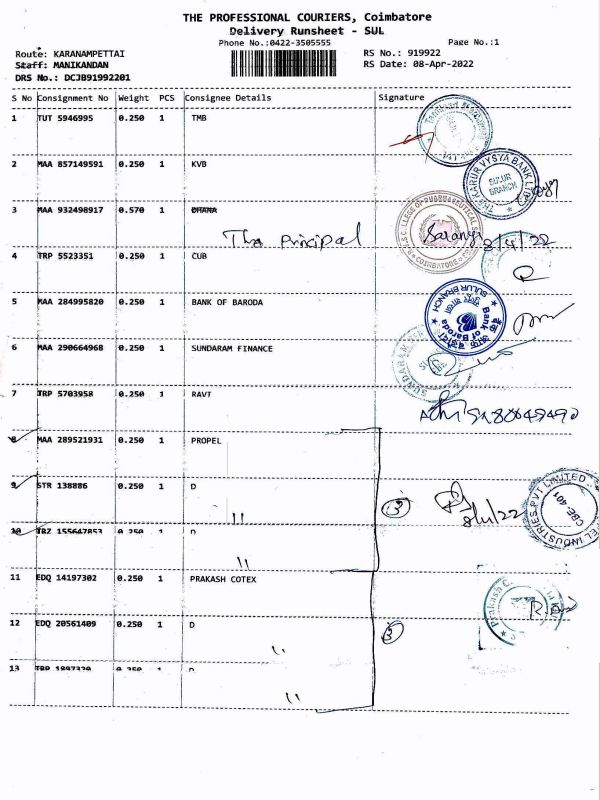 THE PROFESSIONAL COURIERS, Coimbatore
Delivery Runsheet - SUL
Phone No.:0422-3505555
Page No.:1
Route: KARANAMPETTAI
RS No.: 919922
Staff: MANIKANDAN
RS Date: 08-Apr-2022
DRS No.: DCJB91992201
S No Consignment No Weight PCS Consignee Details Signature
1 TUT 5946995 0.250 1 TMB
2 MAA 857149591 0.250 1 KVB
THE KARUR VYSYA BANK LTD
SULUR BRANCH
3 MAA 932498917 0.570 1 DHANA
The Principal
8/4/22
COIMBATORE
4 TRP 5523351 0.250 1 CUB
5 MAA 284995820 0.250 1 BANK OF BARODA
SULUR BRANCH
Bank of Baroda
6 MAA 290664968 0.250 1 SUNDARAM FINANCE
SUNDARAM
7 TRP 5703958 0.250 1 RAVT
8 MAA 289521931 0.250 1 PROPEL
9 STR 138886 0.250 1 D
"
3
8/4/22
INDUSTRIES PVT LIMITED
CBE-401
10 TRZ 155647853 0.250 1 D
"
11 EDQ 14197302 0.250 1 PRAKASH COTEX
Prakash C
12 EDQ 20561409 0.250 1 D
"
3
13 TRP 1897320 0.250 1 D
"